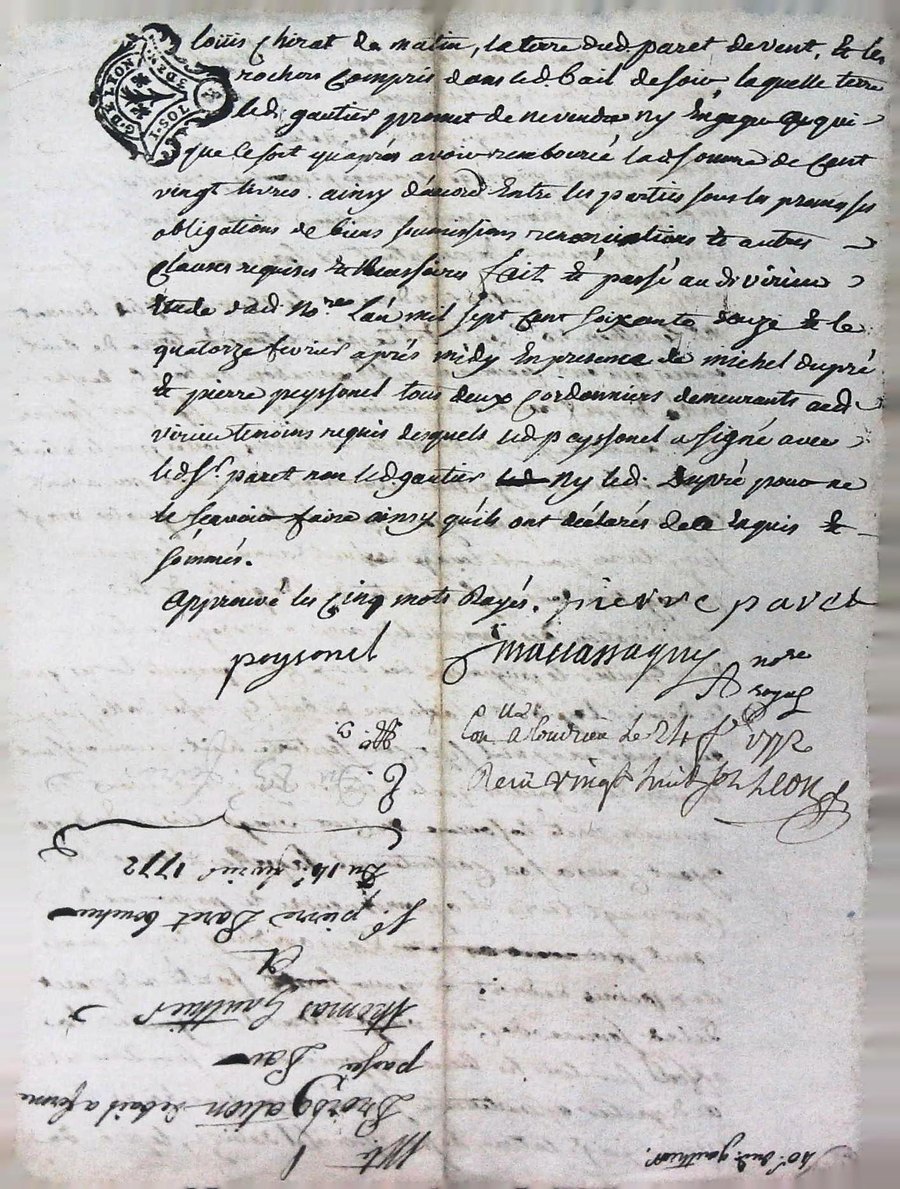 G. DE LYON
louis Chirat de matin, la terre dud. paret de vent, & les
rochers Compris dans led. bail de soir, laquelle terre
led. gautier promet de ne vendre ny Engager a qui
que ce soit qu'après avoir remboursé lad. somme de Cent
vingt livres. ainsy d'acord Entre les parties sous les promesses
obligations de biens sumissions renonciations & autres
Clauses requises & Necessaires fait & passé aud. virieu
Etude dud. No.re L'an mil sept Cent soixante douze & le
quatorze fevrier après midy En presence de michel dupré
& pierre peyssonel tous deux Cordonniers demeurants aud.
virieu temoins requis desquels led. peyssonel a signé avec
led. Sr. paret non led. gautier ny led. Dupré pour ne
le sçavoir faire ainsy qu'ils ont déclarés de ce Enquis &
sommés.
Approuvé les Cinq mots Rayés. pierre paret
peysonel
nore
royal
Con.lle a Condrieu Le 24 f.r 1772
Receu vingt huit sols
No. 3.
Du 14e fevrier 1772
Sr. pierre Paret
&
Thomas Gauthier
passée Par
Prorogation de bail a ferme
No. dud. gauthier